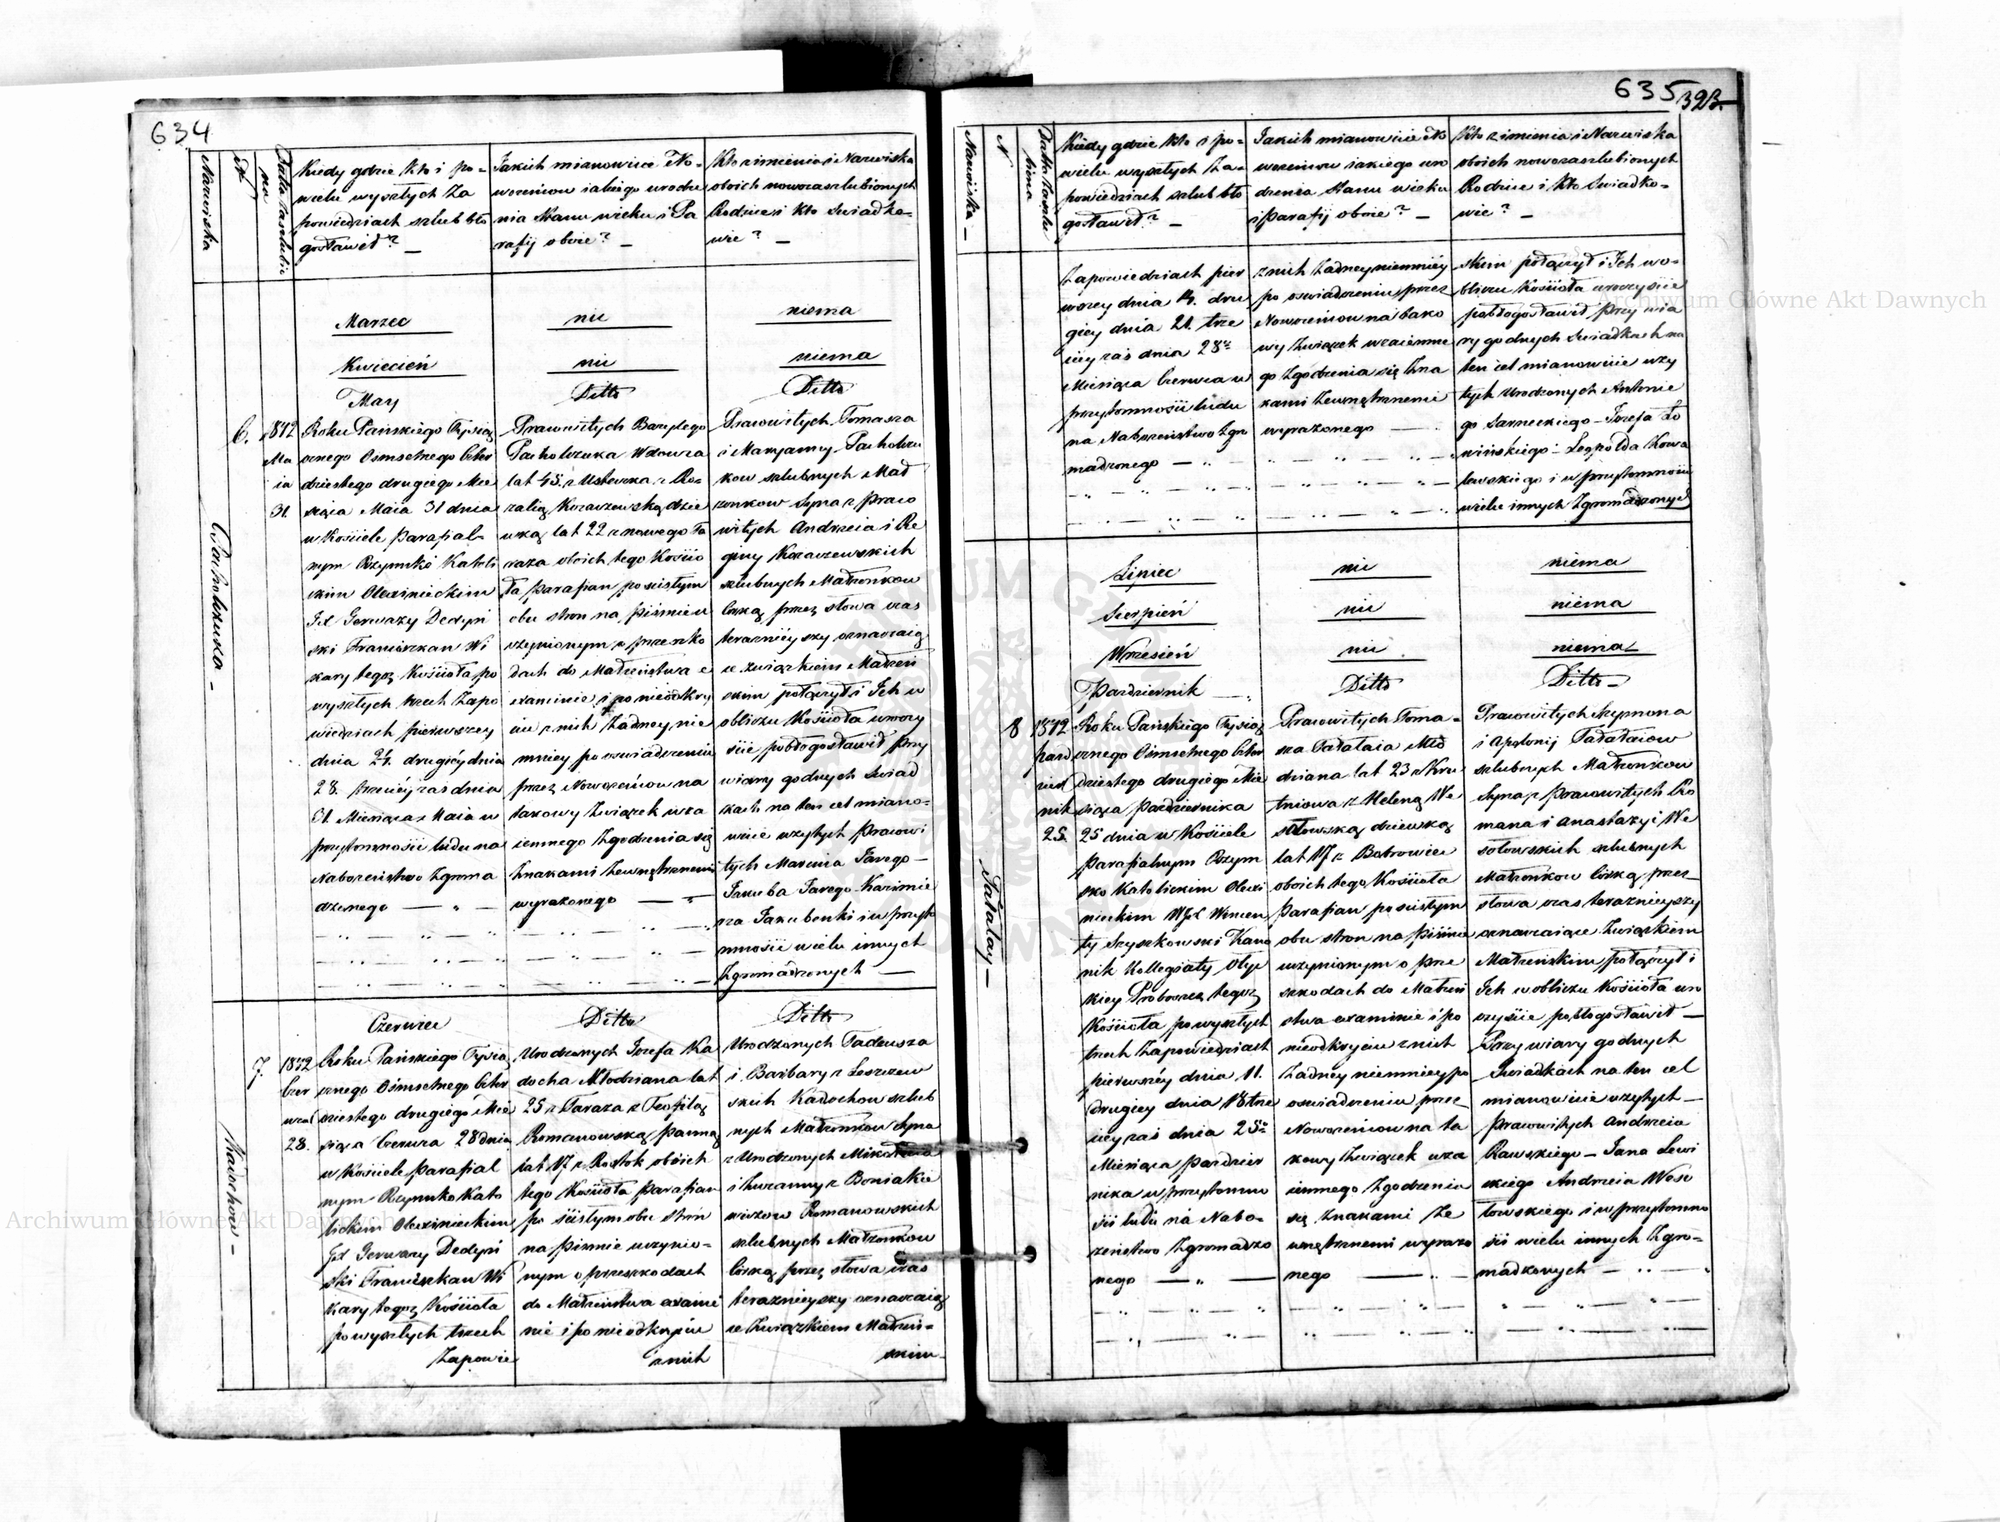 634
Nazwiska
N
Data zaslubie
nia
Kiedy gdzie kto i po
wielu wyszłych Za
powiedziach szlub bło
gosławił? —
Jakich mianowicie No-
wożeniow iakiego urodze
nia Stanu wieku i Pa
rafij oboie? —
Kto z imienia i Nazwiska
oboich nowozaszlubionych
Rodzice i kto Swiadko-
wie? —
Marzec
nic
niema
Kwiecień
nic
niema
May
Ditto
Ditto
6.
1842
Ma
ia
31.
Pacholczuka —
Roku Pańskiego Tysiąc
cznego Osmsetnego Czter
dziestego drugiego Mie
siąca Maia 31 dnia
w Kosciele Parafial-
nym Rzymsko Katoli
ckim Olexinieckim
Jx Gerwazy Dedyń
ski Franciszkan Wi
kary tegoz Kościoła po
wyszłych trzech Zapo
wiedziach pierwszey
dnia 24. drugiéy dnia
28. trzeciéy zaś dnia
31. Miesiąca Maia w
przytomności ludu na
Nabozeństwo Zgroma
dzonego — „ —
Prawowitych Bazylego
Pacholczuka Wdowca
lat 45. z Usteczka z Ro-
zalią Koraczewską dzie
wką lat 22 z nowego Ta
raza oboich tego Kościo
ła Parafian po scisłym
obu stron na pismie u
czynionym o przeszko
dach do Małżeństwa e
xaminie i po nieodkry
ciu z nich Żadney nie
mniey po oswiadczeniu
przez Nowożeńcow na
takowy Związek wza
iemnego Zgodzenia się
Znakami Zewnętrznemi
wyrażonego — „
Prawowitych Tomasza
i Maryanny Pacholczu
kow szlubnych Mał
żonkow Syna z Prawo
witych Andrzeia i Re
giny Koraczewskich
szlubnych Małżonkow
Corką przez słowa czas
teraznieyszy oznaczaią
ce związkiem Małżeń
skim połączył i Ich w
obliczu Kościoła uroczy
ście pobłogosławił przy
wiary godnych Swiad
kach na ten cel miano-
wicie uzytych Pracowi
tych Marcina Jarego —
Jakuba Jarego Kazimie
rza Jakubenki i w przyto
mności wielu innych
Zgromadzonych —
Czerwiec
Ditto
Ditto
7.
1842
Czer
wca
28.
Kadochow —
Roku Pańskiego Tysią
cznego Osmsetnego Czter
dziestego drugiego Mie
siąca Czerwca 28 dnia
w Kosciele Parafial
nym Rzymsko Kato
lickim Olexinieckim
Jx Gerwazy Dedyń
ski Franciszkan Wi
kary tegoz Kościoła
po wyszłych trzech
Zapowie
Urodzonych Jozefa Ka
docha Młodziana lat
25 z Taraza z Teofilą
Romanowską Panną
lat 17 z Rostok oboich
tego Kościoła Parafian
po ścisłym obu stron
na pismie uczynio-
nym o przeszkodach
do Małżeństwa exami
nie i po nieodkryciu
z nich
Urodzonych Tadeusza
i Barbary z Leszczew
skich Kadochow szlub
nych Małżonkow Syna
z Urodzonych Mikołaia
i Zuzanny z Boniakie
wiczow Romanowskich
szlubnych Małżonkow
Corką przez słowa czas
teraznieyszy oznaczaią
ce Związkiem Małżeń-
skim
635
323.
Nazwiska —
N
Data zaslubie
nia
Kiedy gdzie kto i po-
wielu wyszłych Za-
powiedziach szlub bło
gosławił? —
Jakich mianowicie No
wożeniow iakiego uro
dzenia Stanu wieku
i Parafij oboie? —
Kto z imienia i Nazwiska
oboich nowozaszlubionych
Rodzice i kto Swiadko-
wie? —
Zapowiedziach pier
wszey dnia 14. dru
giey dnia 21. trze
ciey zaś dnia 28go
Miesiąca Czerwca w
przytomności ludu
na Nabożeństwo Zgro
madzonego — „ —
z nich Żadney niemniey
po oswiadczeniu przez
Nowożeńcow na tako
wy Związek wzaiemne
go Zgodzenia się Zna
kami Zewnętrznemi
wyrażonego —
skim połączył i Ich wo-
bliczu Kościoła uroczyście
pobłogosławił, przy wia
ry godnych Swiadkach na
ten cel mianowicie uży
tych Urodzonych Antonie
go Sarneckiego — Jozefa Ło
zińskiego — Leopolda Kowa
lewskiego i w przytomności
wielu innych Zgromadzonych
Lipiec
nic
niema
Sierpień
nic
niema
Wrzesień
nic
niema
Pazdziernik
Ditto
Ditto —
8
1842
Pazd
zier
nik
25.
Tałałay —
Roku Pańskiego Tysiąc
cznego Osmsetnego Czter
dziestego drugiego Mie
siąca Pazdziernika
25 dnia w Kościele
Parafialnym Rzym
sko Katolickim Olexi
nieckim WJx Wincen
ty Szyszkowski Kano
nik Kollegiaty Oły
ckiey Proboszcz tegoz
Kościoła po wyszłych
trzech Zapowiedziach
pierwszéy dnia 11.
drugiey dnia 18 trze
ciey zaś dnia 25go
Miesiąca Pazdzier
nika w przytomno
ści ludu na Nabo-
żeństwo Zgromadzo
nego — „ —
Pracowitych Toma-
sza Tałałaia Mło
dziana lat 23 z Kru
tniowa z Heleną We
sołowską dziewką
lat 17 z Bobrowiec
oboich tego Kościoła
Parafian po scisłym
obu stron na pismie
uczynionym o prze
szkodach do Małżeń
stwa examinie i po
nieodkryciu z nich
Żadney niemniey po
oswiadczeniu przez
Nowożeniow na ta
kowy Związek wza
iemnego Zgodzenia
się Znakami Ze
wnętrznemi wyrażo
nego —
Pracowitych Szymona
i Apolonij Tałałaiow
szlubnych Małżonkow
Syna z Pracowitych Ro
mana i Anastazyi We
sołowskich szlubnych
Małżonkow Corką przez
słowa czas teraznieyszy
oznaczaiące Związkiem
Małżeńskim połączył i
Ich w obliczu Kościoła uro
czyście pobłogosławił —
Przy wiary godnych
Swiadkach na ten cel
mianowicie uzytych —
Pracowitych Andrzeia
Rawskiego — Jana Lewi
ckiego Andrzeia Weso
łowskiego i w przytomno
ści wielu innych Zgro-
madzonych —
Archiwum Główne Akt Dawnych
Archiwum Główne Akt Dawnych